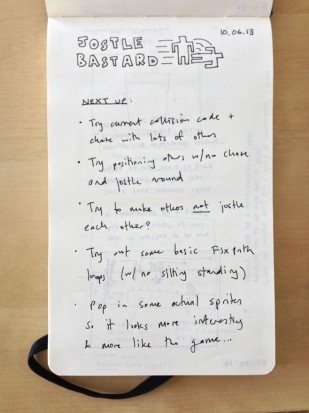 JOSTLE
BASTARD
10.06.13
NEXT UP:
· Try current collision code +
chase with lots of others
· Try positioning others w/ no chase
and jostle round
· Try to make others not jostle
each other?
· Try out some basic Flx path
loops (w/ no sitting standing)
· Pop in some actual sprites
so it looks more interesting
& more like the game...